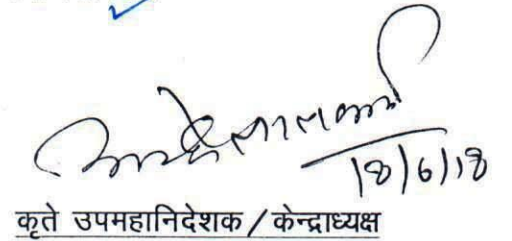 18/6/18
कृते उपमहानिदेशक / केन्द्राध्यक्ष